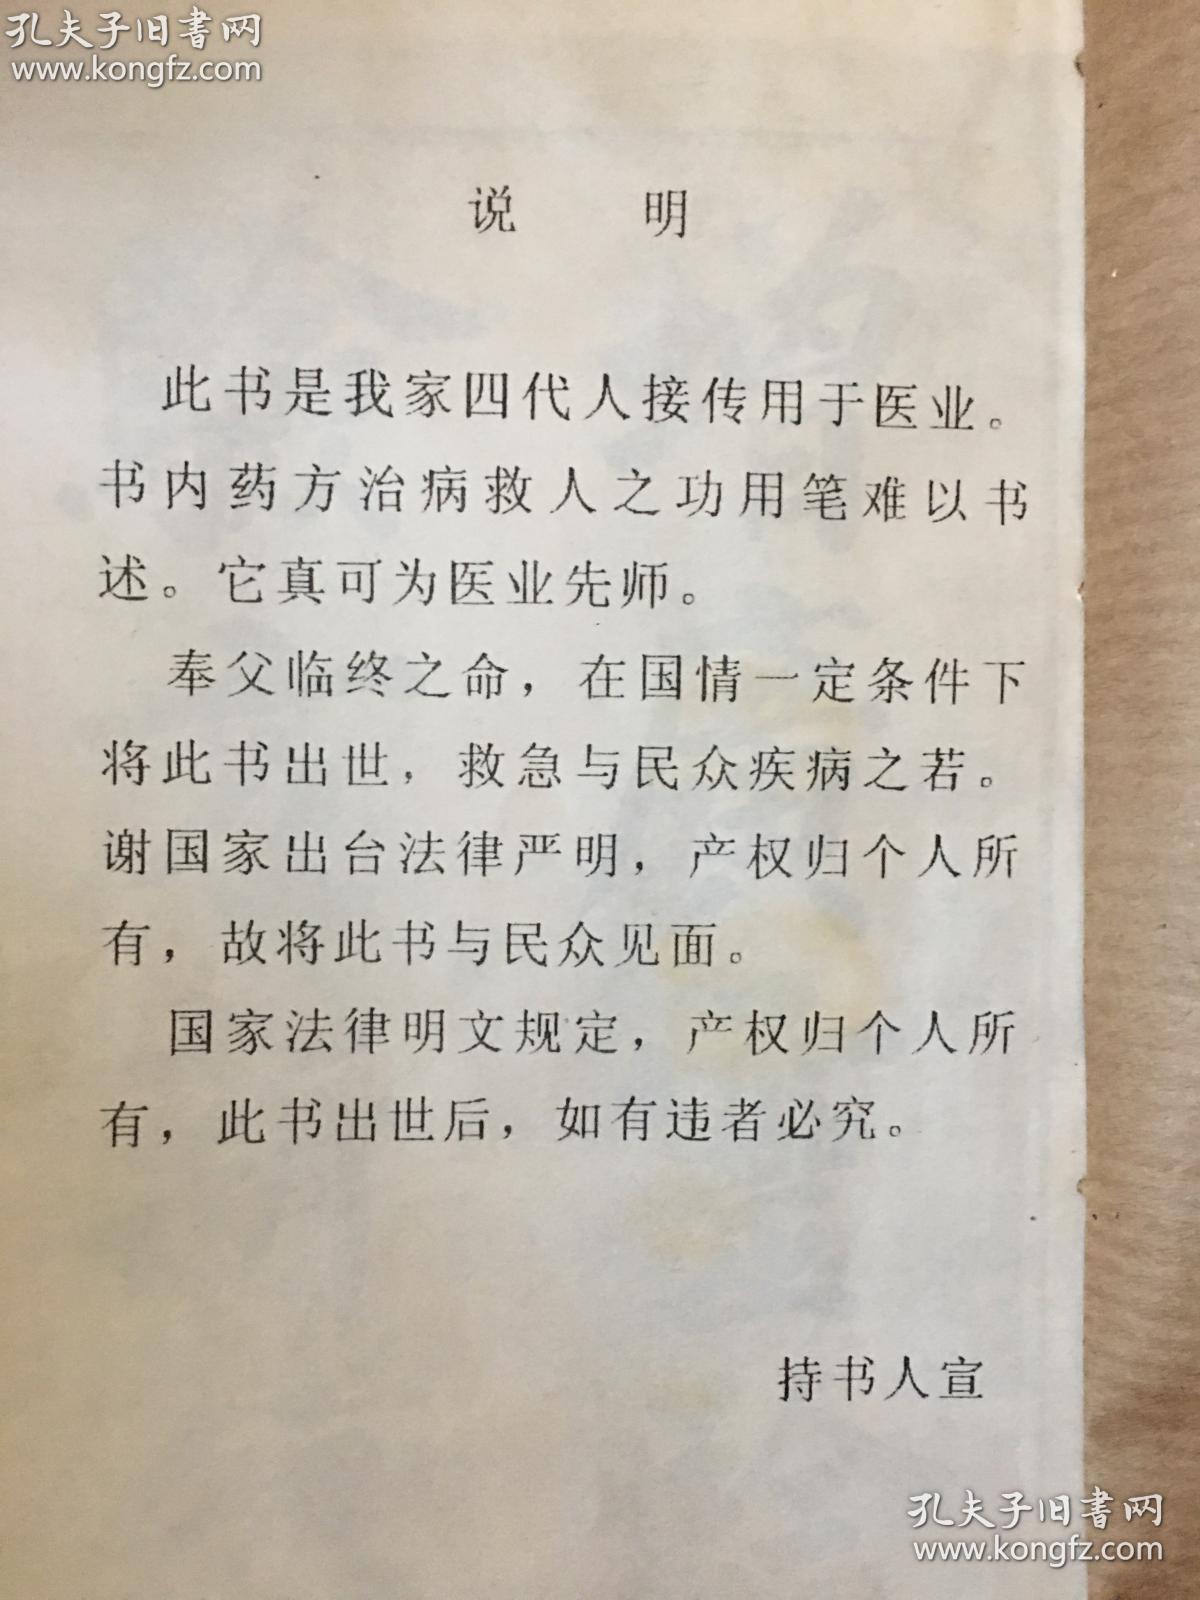 孔夫子旧書网
www.kongfz.com
说 明
此书是我家四代人接传用于医业。
书内药方治病救人之功用笔难以书
述。它真可为医业先师。
奉父临终之命，在国情一定条件下
将此书出世，救急与民众疾病之若。
谢国家出台法律严明，产权归个人所
有，故将此书与民众见面。
国家法律明文规定，产权归个人所
有，此书出世后，如有违者必究。
持书人宣
孔夫子旧書网
www.kongfz.com